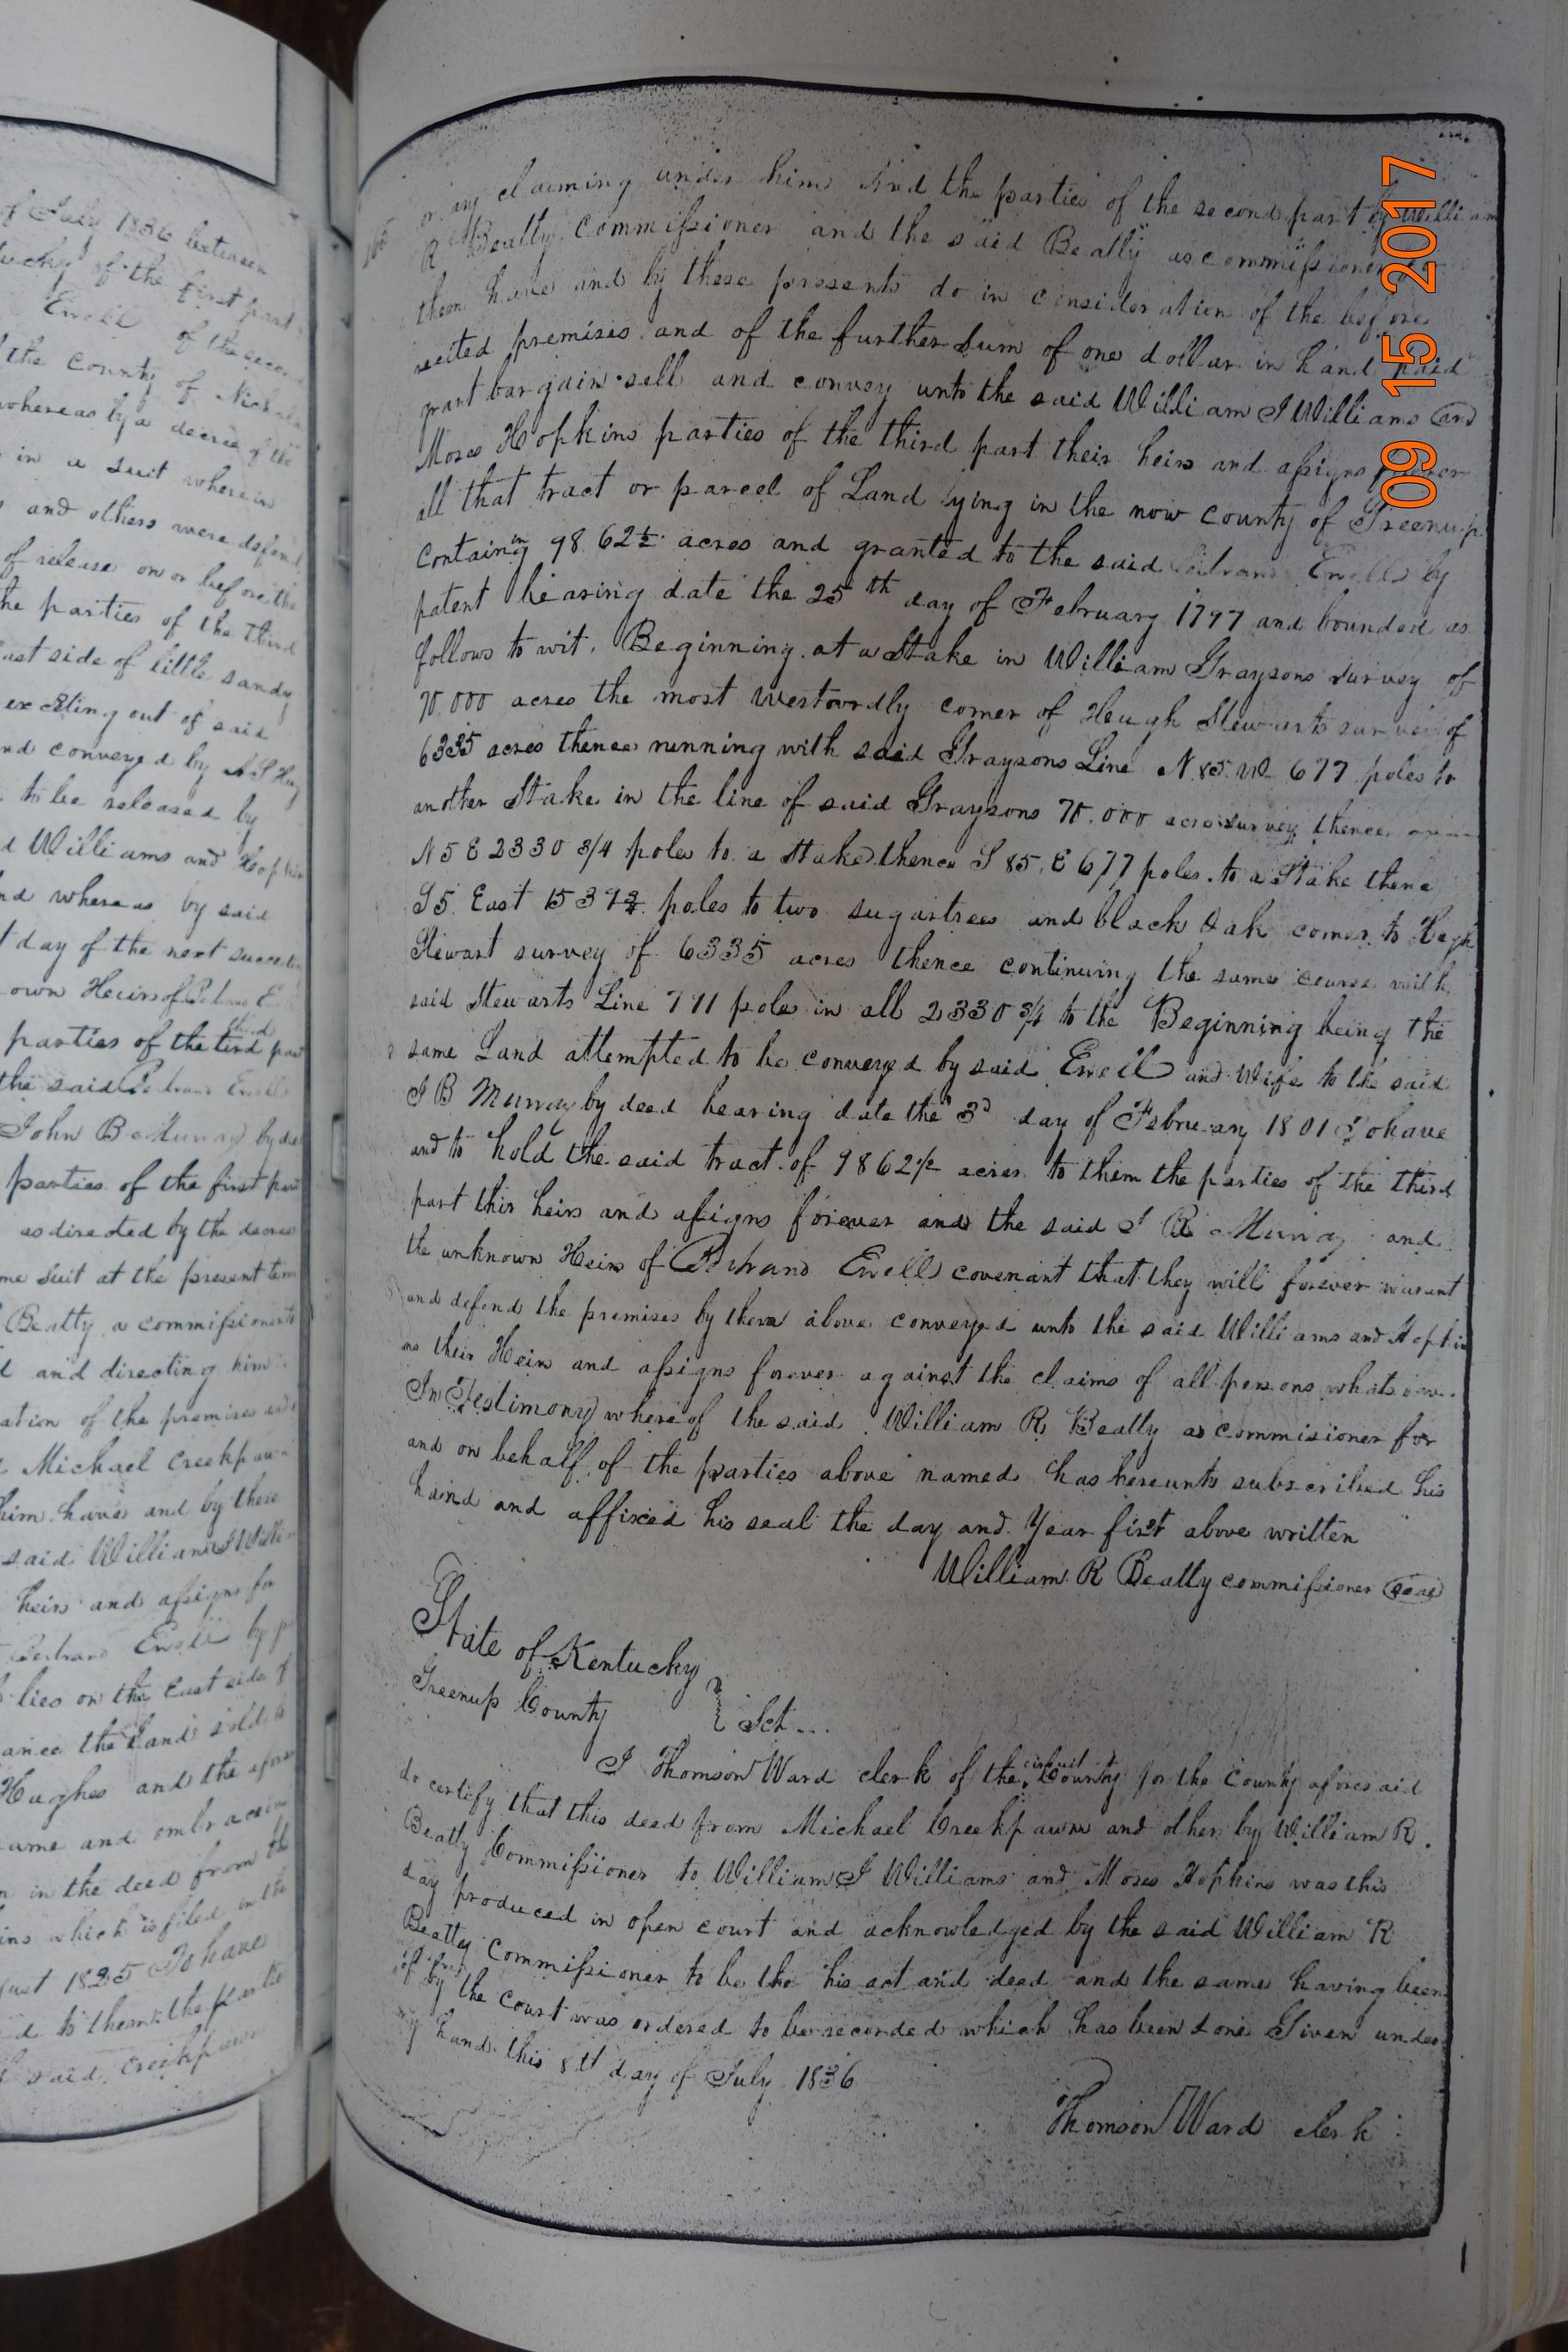 of July 1836 between
of the first part
Ewell of the second
the County of
whereas by a decree of the
in a suit wherein
and others were
of release on or before the
the parties of the third
East side of little sandy
existing out of said
and conveyed by
to be released by
Williams and
and whereas by said
day of the next
own Heirs of
parties of the third
the said Ewell
John B Murray by
parties of the first part
as directed by the decree
suit at the present term
Beatty a commissioner
and directing him
of the premises and
Michael Creekpaum
him have and by these
said William I
heirs and assigns for
Ewell by
lies on the East side of
the Land sold
Hughes and the
and embracing
in the deed from the
which is filed in the
1825 To have
to them the parties
said Creekpaum
or any claiming under him And the parties of the second part by William
R Beatty Commissioner and the said Beatty as commissioner
them have and by these presents do in consideration of the before
recited premises and of the further Sum of one dollar in hand paid
grant bargain sell and convey unto the said William I Williams and
Moses Hopkins parties of the third part their heirs and assigns forever
all that tract or parcel of Land lying in the now county of Greenup
Containing 9862½ acres and granted to the said Ewell by
patent bearing date the 25th day of February 1797 and bounded as
follows to wit. Beginning at a Stake in William Graysons survey of
70.000 acres the most westwardly corner of Heugh Stewarts survey of
6335 acres thence running with said Graysons Line N. 85. W 677 poles to
another Stake in the line of said Graysons 70.000 acre survey thence
N 5 E 2330 3/4 poles to a stake thence S 85. E 677 poles. to a Stake thence
S 5. East 1539¾ poles to two sugartrees and black oak corner to Hugh
Stewart survey of 6335 acres thence continuing the same course with
said Stewarts Line 791 poles in all 2330 3/4 to the Beginning being the
same Land attempted to be conveyed by said Ewell and Wife to the said
J B Murray by deed bearing date the 3d day of February 1801 To have
and to hold the said tract of 9862½ acres to them the parties of the third
part thir heirs and assigns forever and the said J B Murray and
the unknown Heirs of Bertrand Ewell covenant that they will forever warant
and defend the premises by them above conveyed unto the said Williams and Hopkin
ns their Heirs and assigns forever against the claims of all persons whatsoever.
In Testimony where of the said William R Beatty as commisioner for
and on behalf of the parties above named has hereunto subscribed his
hand and affixed his seal the day and Year first above written
William R Beatty commissioner seal
State of Kentucky
Greenup County } Sct...
I Thomson Ward clerk of the circuit County for the County aforesaid
do certify that this deed from Michael Creekpaum and others by William R.
Beatty Commissioner to William I Williams and Moses Hopkins was this
day produced in open court and acknowledged by the said William R
Beatty Commissioner to be the his act and deed and the same having been
by the court was ordered to be recorded which has been done Given under
my hand this 8th day of July 1836
Thomson Ward clerk
09 15 2017